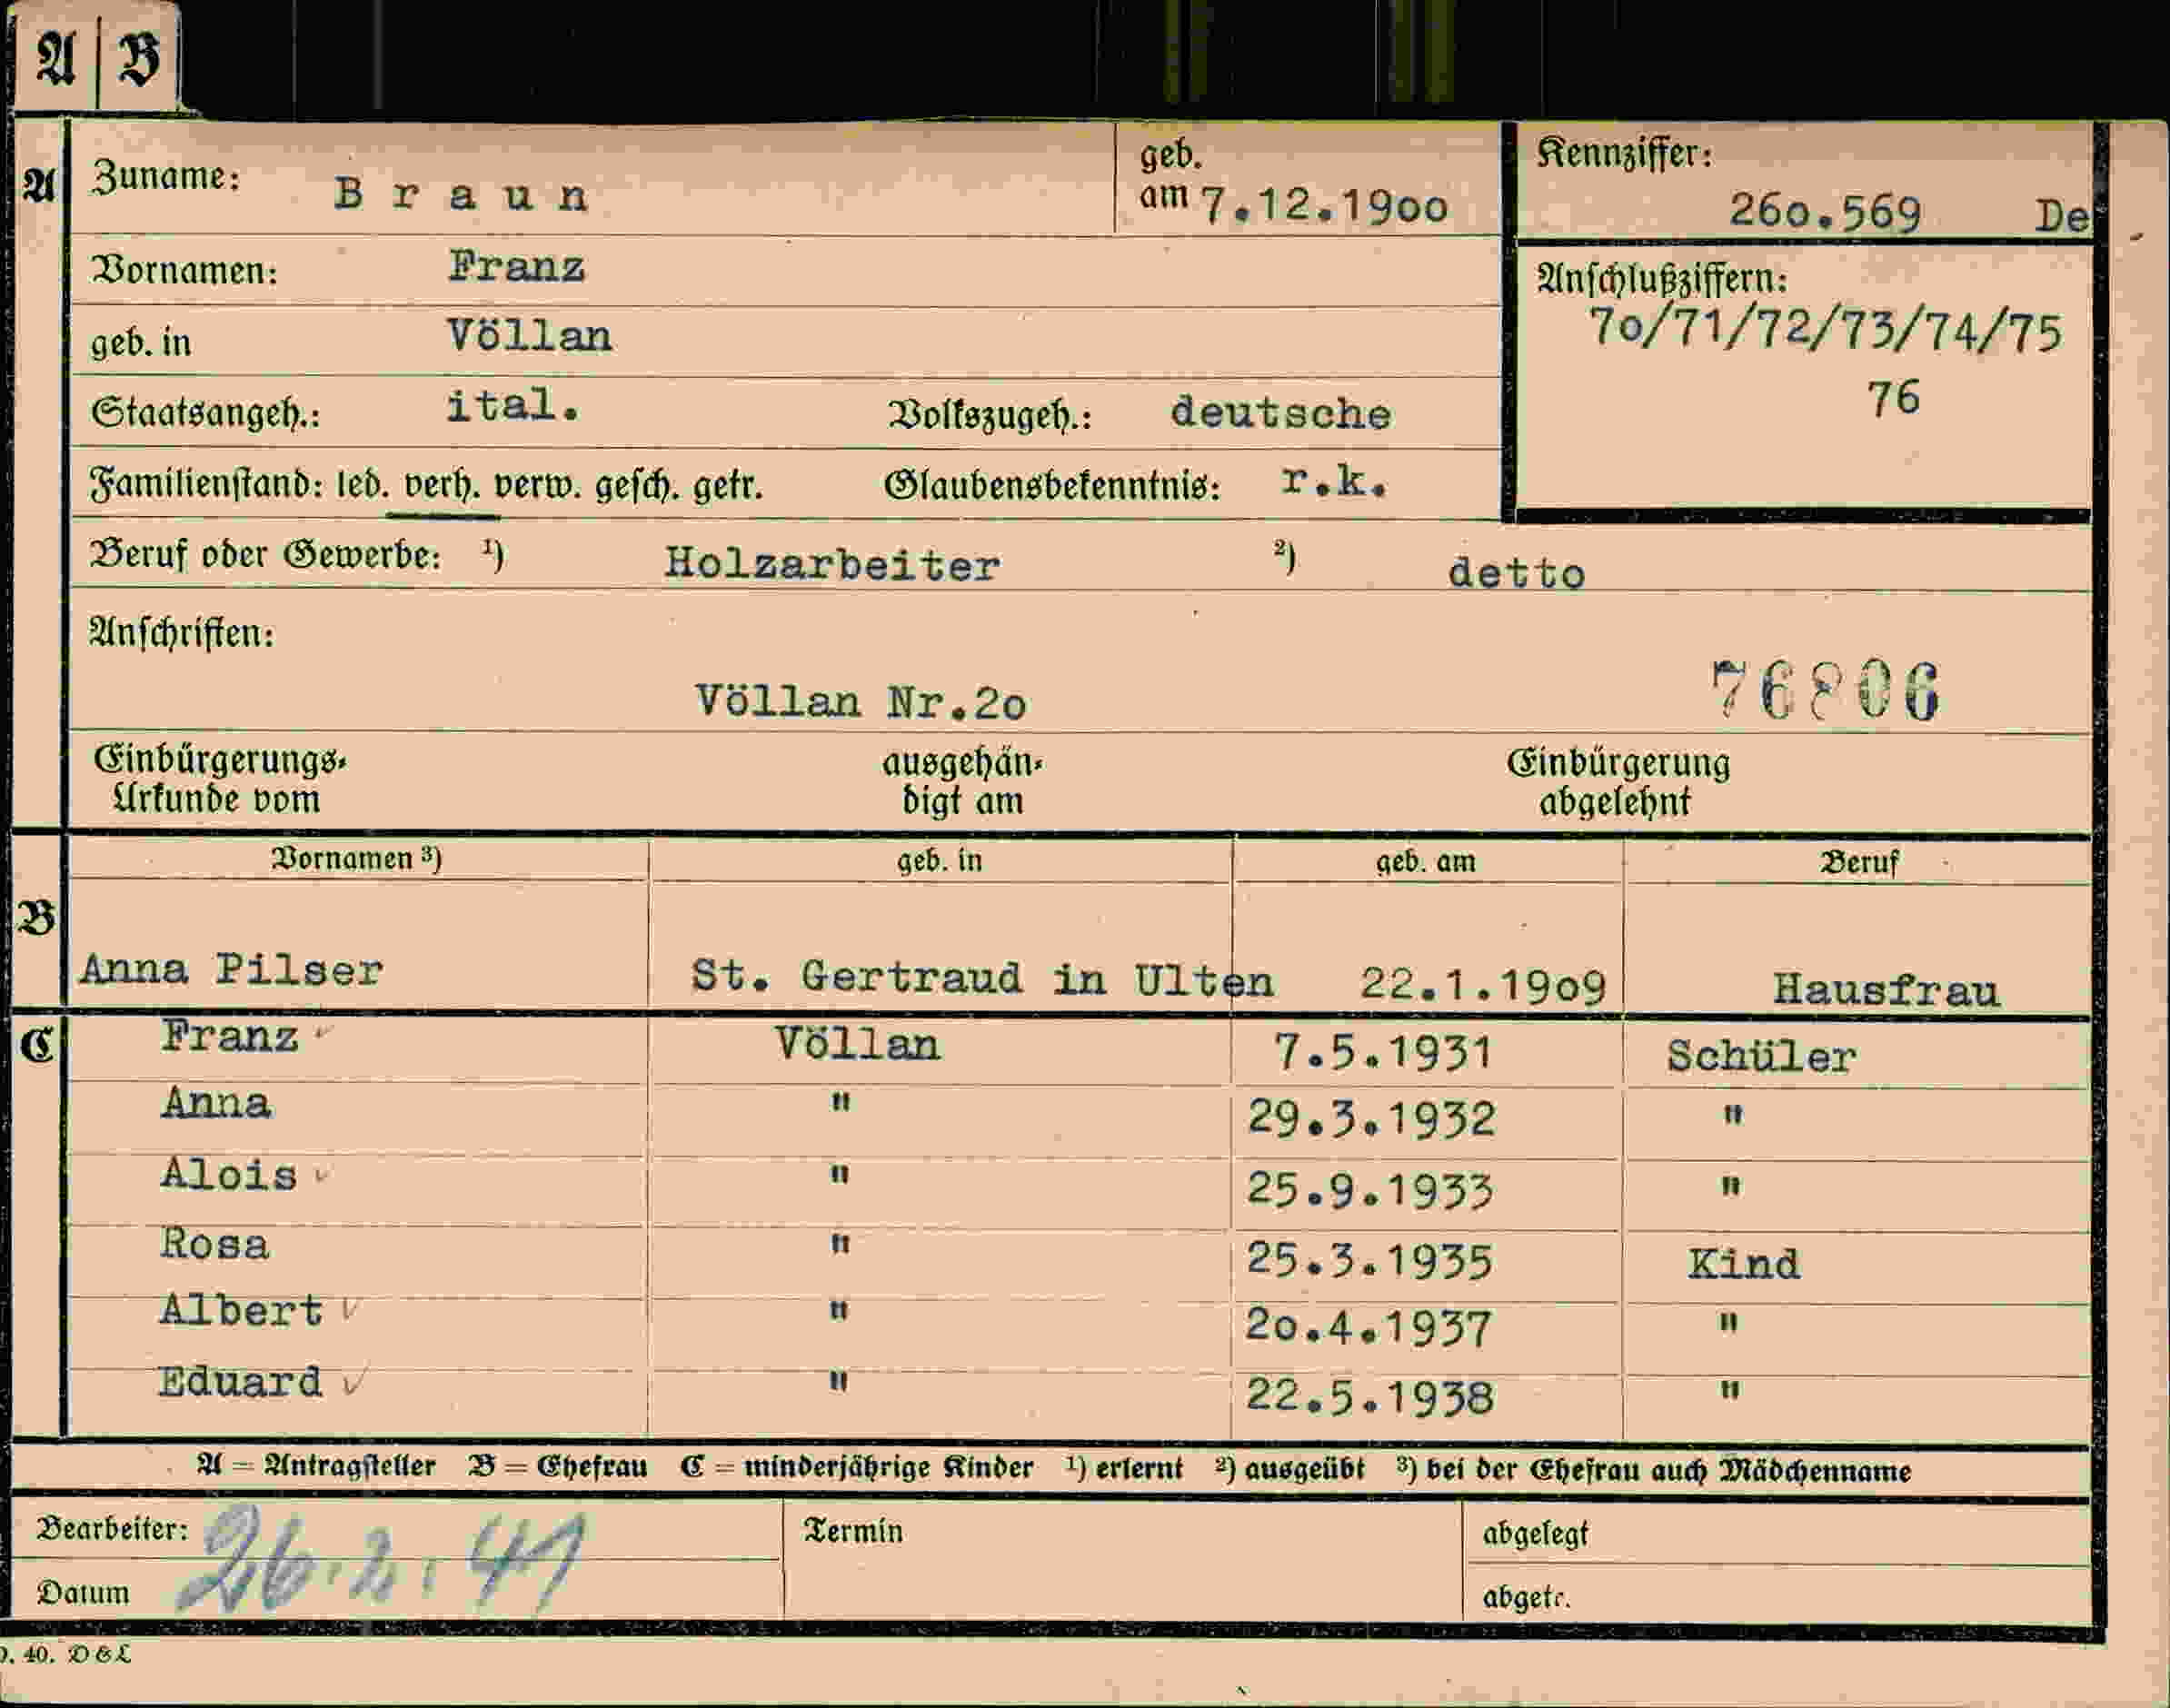 A B
A Zuname: Braun geb. am 7.12.19oo Kennziffer: 26o.569 De
Vornamen: Franz Anschlußziffern:
7o/71/72/73/74/75
geb. in Völlan
Staatsangeh.: ital. Volkszugeh.: deutsche 76
Familienstand: led. verh. verw. gesch. getr. Glaubensbekenntnis: r.k.
Beruf oder Gewerbe: ¹) Holzarbeiter ²) detto
Anschriften:
Völlan Nr.2o 76806
Einbürgerungs- ausgehän- Einbürgerung
Urkunde vom digt am abgelehnt
Vornamen ³) geb. in geb. am Beruf
B Anna Pilser St. Gertraud in Ulten 22.1.19o9 Hausfrau
C Franz ✓ Völlan 7.5.1931 Schüler
Anna " 29.3.1932 "
Alois ✓ " 25.9.1933 "
Rosa " 25.3.1935 Kind
Albert ✓ " 2o.4.1937 "
Eduard ✓ " 22.5.1938 "
A = Antragsteller B = Ehefrau C = minderjährige Kinder ¹) erlernt ²) ausgeübt ³) bei der Ehefrau auch Mädchenname
Bearbeiter: Termin abgelegt
26.2.41
Datum abgetr.
40. D&L